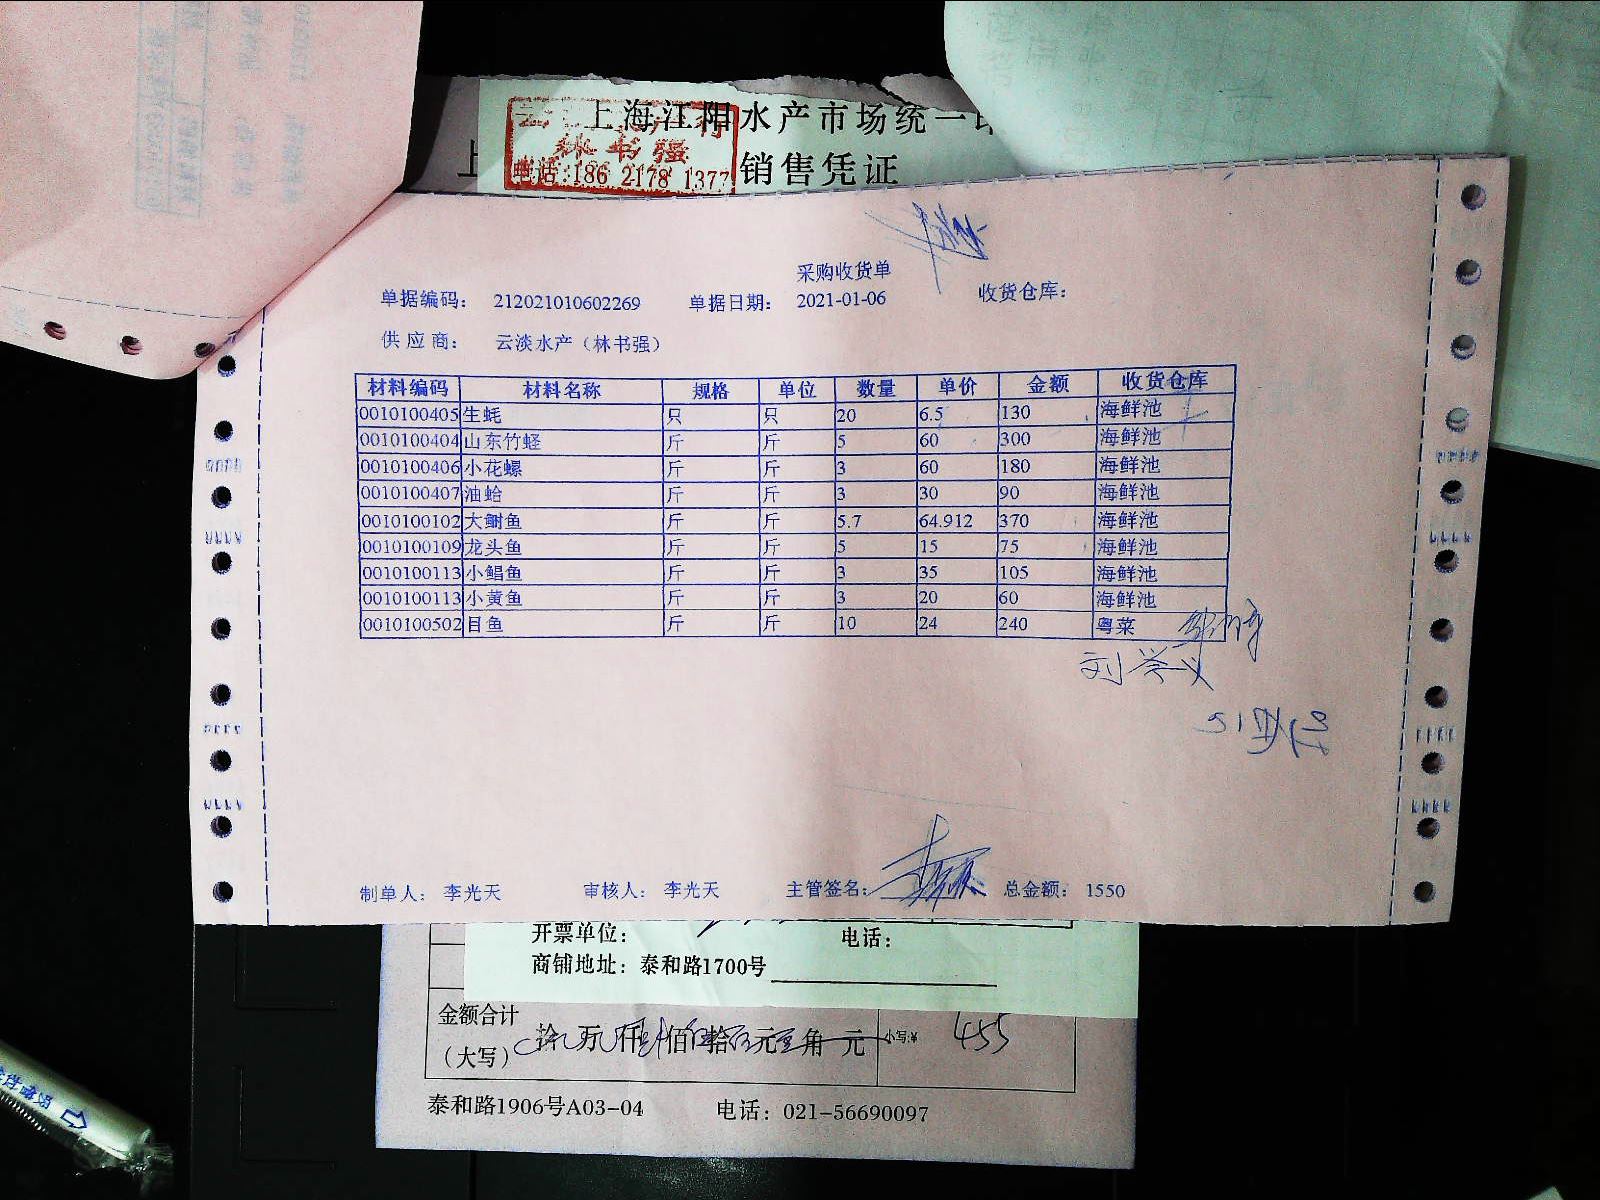 上海江阳水产市场统一
林书强
电话:186 2178 1377
销售凭证
采购收货单
单据编码: 212021010602269 单据日期: 2021-01-06 收货仓库:
供应商: 云淡水产（林书强）
材料编码 材料名称 规格 单位 数量 单价 金额 收货仓库
0010100405 生蚝 只 只 20 6.5 130 海鲜池
0010100404 山东竹蛏 斤 斤 5 60 300 海鲜池
0010100406 小花螺 斤 斤 3 60 180 海鲜池
0010100407 油蛤 斤 斤 3 30 90 海鲜池
0010100102 大鲥鱼 斤 斤 5.7 64.912 370 海鲜池
0010100109 龙头鱼 斤 斤 5 15 75 海鲜池
0010100113 小鲳鱼 斤 斤 3 35 105 海鲜池
0010100113 小黄鱼 斤 斤 3 20 60 海鲜池
0010100502 目鱼 斤 斤 10 24 240 粤菜
制单人: 李光天 审核人: 李光天 主管签名: 总金额: 1550
开票单位: 电话:
商铺地址: 泰和路1700号
金额合计
（大写） 拾 万 仟 佰 拾 元 角 元 小写:¥ 455
泰和路1906号A03-04 电话: 021-56690097